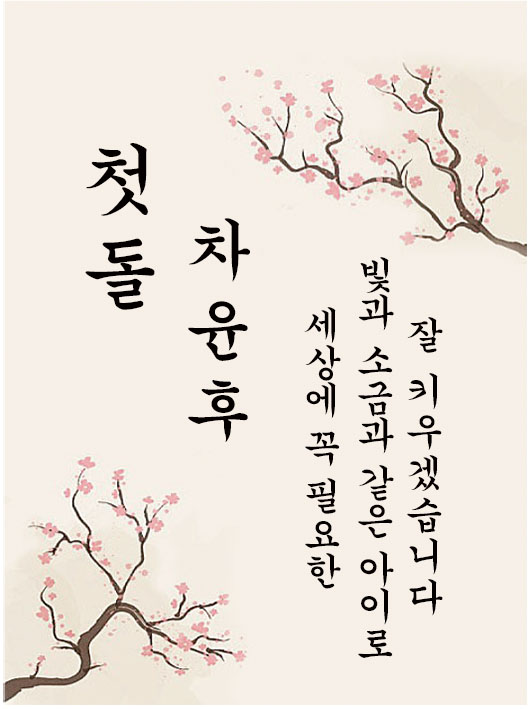 첫돌
차윤후
세상에 꼭 필요한
빛과 소금과 같은 아이로
잘 키우겠습니다